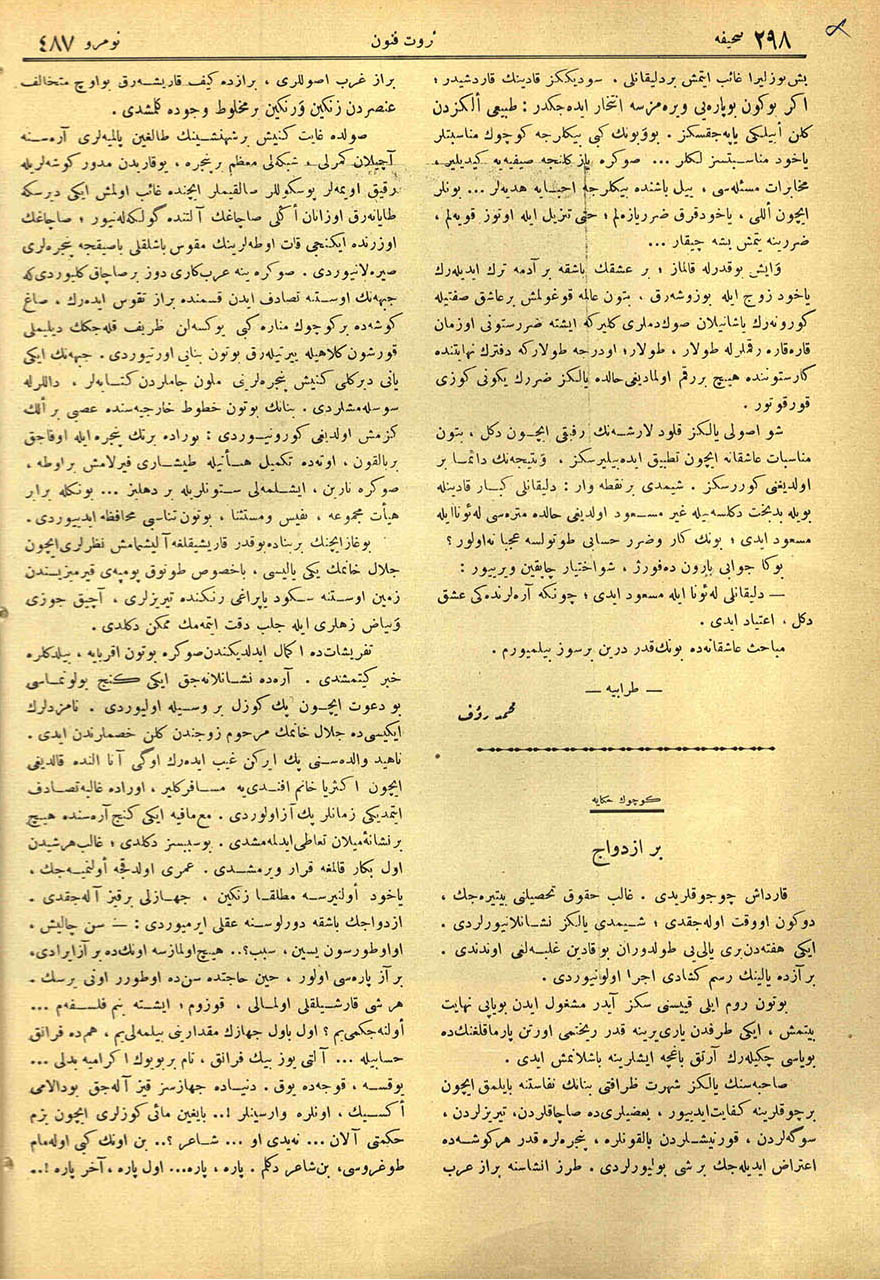 صحیفه ٢٩٨
ثروت فنون
نومرو ٤٨٧
بش یوز لیرا غائب ایتمش بر دلیقانلی . سودیککز قادینك قاردشیدر ؛
اکر بوکون بو پاره‌یی ویره‌مزسه انتحار ایده‌جکدر : طبیعی ألکزدن
کلن أییلکی یاپه‌جقسکز . بو ویونك کبی بیکلرجه کوچوك مناسبتلر
یاخود مناسبتسز لکلر ... صوکره یاز کلنجه صیفیه‌یه کیدیلیر ،
مخابرات مسئله‌سی ، ییل باشنده بیکلرجه احبابه هدیه‌لر ... بونلر
ایچون أللی ، یاخود قرق ضرر یازه‌لم ؛ حتی تنزیل ایله اوتوز قویه‌لم ،
ضررینه یتمش بشه چیقار ...
وایش بوقدرله قالماز ؛ بر عشقك باشقه بر آدمه ترك ایدیله‌رك
یاخود زوج ایله بوزوشه‌رق ، بتون عالمه قوغولمش بر عاشق صفتیله
کورونه‌رك یاشانیلان صوك دملری کلیرکه ایشته ضرر ستونی اوزمان
قاره قاره رقملر له طولار ، طولار ؛ اودرجه طولارکه دفترك نهایتنده
کار ستوننده هیچ بر رقم اولمادیغی حالده یالکز ضررك یکونی کوزی
قورقوتور .
شو اصولی یالکز قلود لارشه‌نك رفیقی ایچون دکل ، بتون
مناسبات عاشقانه ایچون تطبیق ایده‌بیلیرسکز ، ونتیجه‌نك دائما بر
اولدیغنی کوررسکز . شیمدی بر نقطه وار : دلیقانلی کبار قادینله
بویله بدبخت دکلسه‌یله غیر مسعود اولدیغی حالده متره‌سی له‌ئونا ایله
مسعود ایدی ؛ بونك کار وضرر حسابی طوتولسه عجبا نه اولور ؟
بوکا جوابی بارون ده‌فورژ ، شو اختیار چاپقین ویرییور :
— دلیقانلی له‌ئونا ایله مسعود ایدی ؛ چونکه آره‌لرنده‌کی عشق
دکل ، اعتیاد ایدی .
مباحث عاشقانه‌ده بونك قدر درین بر سوز بیلمیورم .
— طرابیه —
محمد رؤف
کوچوك حکایه
بر ازدواج
قارداش چوجوقلریدی . غالب حقوق تحصیلنی بیتیره‌جك ،
دوکون اووقت اوله‌جقدی ؛ شیمدی یالکز نشانلانیورلردی .
ایکی هفته‌دن‌بری یالی‌یی طولدوران بو قادین غلبه‌لغی اوندندی .
بر آزده یالینك رسم کشادی اجرا اولونیوردی .
بوتون روم ایلی قییسنی سکز آیدر مشغول ایدن بویاپی نهایت
بیتمش ، ایکی طرفدن یاری یرینه قدر ریختمی اورتن پارماقلغنك ده
بویاسی چکیله‌رك آرتق باغچه ایشلرینه باشلانمش ایدی .
صاحبه‌سنك یالکز شهرت ظرافتی بنانك نفاستنه باییلمق ایچون
بر چوقلرینه کفایت ایدییور ، بعضیلری ده صاچاقلردن ، تیریزلردن ،
سوکه‌لردن ، قورنیشلردن بالقونلره ، پنجره‌لره قدر هر کوشه‌ده
اعتراض ایدیله‌جك بر شی بولیورلردی . طرز انشاسنه براز عرب
براز غرب اصوللری ، برازده کیف قاریشه‌رق بو اوچ متخالف
عنصردن زنکین ورنکین بر مخلوط وجوده کلمشدی .
صولده غایت کنیش بر شهنشینك طالغین پالمیه‌لری آره‌سنه
آچیلان کمرلی ، شبکه‌لی معظم بر پنجره ، یوقاریدن مدور کوشه‌لریله
رقیق اویمه‌لر پوسکوللر صالقیملر ایچنده غائب اولمش ایکی دیرسکه
طایانه‌رق اوزانان أکلی صاچاغك آلتنده کولکه‌له‌نیور ؛ صاچاغك
اوزرنده ایکنجی قات اوطه‌لرینك مقوس باشلقلی باصیقجه پنجره‌لری
صیره‌لانیوردی . صوکره ینه عرب‌کاری دوز بر صاچاق کلیوردی که
جبهه‌نك اوستنه تصادف ایدن قسمنده براز تقوس ایده‌رك . صاغ
کوشه‌ده بر کوچوك مناره کبی یوکسه‌لن ظریف قله‌جکك دیلیملی
قورشون کلاهیله بیرتیله‌رق بوتون بنایی اورتیوردی . جبهه‌نك ایکی
یانی دیرکلی کنیش پنجره‌لرینی ملون جاملردن کتابه‌لر ، داللرله
سوسله‌مشلردی . بنانك بوتون خطوط خارجیه‌سنده عصبی بر ألك
کزمش اولدیغی کورونیوردی : بوراده بر تك پنجره ایله اوفاجق
بر بالقون ، اوته‌ده تکمیل هیأتیله طیشاری فیرلامش بر اوطه ،
صوکره نارین ، ایشلمه‌لی ستونلریله بر دهلیز ... بونکله برابر
هیأت مجموعه ، نفیس ومستثنا ، بوتون تناسبی محافظه ایدییوردی .
بوغاز ایچنك بر بناده بوقدر قاریشیقلغه آلیشمامش نظرلری ایچون
جلال خانمك یکی یالیسی ، باخصوص طونوق پومبه‌ی قیرمیزیدن
زمین اوستنه سکود یاپراغی رنکنده تیریزلری ، آچیق جوزی
وبیاض زهلری ایله جلب دقت ایتمه‌مك ممکن دکلدی .
تفریشات ده اکمال ایدلدیکندن صوکره بوتون اقربایه ، بیلدکلره
خبر کیتمشدی . آره‌ده نشانلانه‌جق ایکی کنج بولونماسی
بو دعوت ایچون پك کوزل بر وسیله اولیوردی . نامزدلرك
ایکیسی ده جلال خانمك مرحوم زوجندن کلن خصملرندن ایدی .
ناهید والده‌سنی پك ایرکن غیب ایده‌رك اوکی آنا النده قالدیغی
ایچون اکثریا خانم افندی‌یه مسافر کلیر ، اوراده غالبه تصادف
ایتمدیکی زمانلر پك آز اولوردی . مع‌مافیه ایکی کنج آره‌سنده هیچ
بر نشانۀ میلان تعاطی ایدلمه‌مشدی . بو سببسز دکلدی ؛ غالب هرشیدن
اول بکار قالمغه قرار ویرمشدی . عمری اولدقجه أولنمیه‌جك ،
یاخود أولنیرسه مطلقا زنکین ، جهازلی بر قیز آله‌جقدی .
ازدواجك باشقه دورلوسنه عقلی ایرمیوردی : — سن چالیش ،
او اوطورسون یسین ، سبب؟.. هیچ اولمازسه اونك ده بر آز ایرادی ،
بر آز پاره‌سی اولور ، حین حاجتده سن ده اوطورر اونی یرسك .
هر شی قارشیلقلی اولمالی ، قوزوم ؛ ایشته بنم فلسفه‌م ...
أوله‌نه‌جکمی‌یم ؟ اول باول جهازك مقدارینی بیلمه‌لی‌یم ، هم ده فرانق
حسابیله ... آلتی یوز بیك فرانق ، تام بر بویوك اکرامیه بدلی ...
یوقسه ، قوجه‌ده یوق . دنیاده جهازسز قیز آله‌جق بودالامی
أکسیك ، اونلره وارسینلر !.. بایغین مائی کوزلری ایچون بزم
حکمتی آلان ... نه‌یدی او ... شاعر ؟.. بن اونك کبی اوله‌مام
طوغروسی ، بن شاعر دکلم . پاره ، پاره... اول پاره ، آخر پاره !..